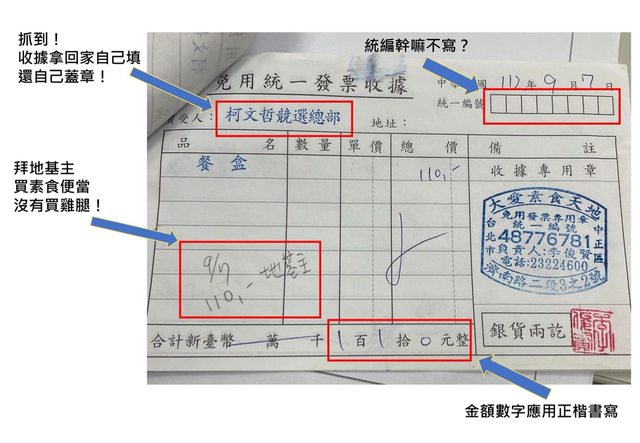 抓到！
收據拿回家自己填
還自己蓋章！
統編幹嘛不寫？
免用統一發票收據
中華 國 111年9月7日
統一編號
買受人： 柯文哲競選總部 地址：
品 名 數 量 單 價 總 價 備 註
餐盒 110,- 收據專用章
大愛素食天地
免用發票專用章
統一編號
台北 48776781 中正區
市負責人:李俊賢
電話:23224600
濟南路二段3之2號
拜地基主
買素食便當
沒有買雞腿！
9/7 地基主
110,-
合計新臺幣 萬 千 1百1拾0元整
銀貨兩訖
金額數字應用正楷書寫